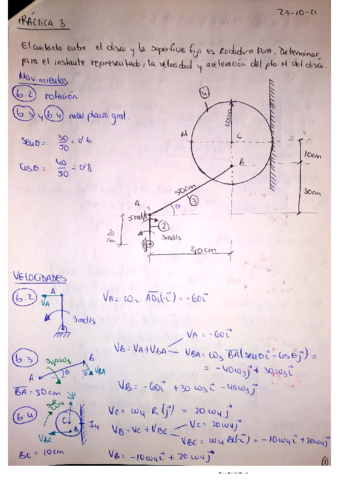 PRÁCTICA 3
29-10-21
El contacto entre el disco y la superficie fija es Rodadura Pura. Determinar,
para el instante representado, la velocidad y aceleración del pto M del disco.
Movimientos
b.2 rotación
b.3 y b.4 mov plano gral.
senθ = 30/50 = 0'6
cosθ = 40/50 = 0'8
4
20cm
M
C
B
10cm
30cm
50cm
3
A
θ
2
20 cm
3rad/s
40cm
VELOCIDADES
b.2
A
VA
3rad/s
VA = ω2 AO2(-i) = -60i
b.3
A
B
θ
VBA
BA = 50cm
VB = VA + VBA
VA = -60i
VBA = ω3 BA(senθ i - cosθ j) =
VB = -60i + 30ω3 i - 40ω3 j
b.4
C
B
I4
VC
VBC
BC = 10cm
VC = ω4 R (j) = 20ω4 j
VB = VC + VBC
VC = 20ω4 j
VB = -10ω4 i + 20ω4 j